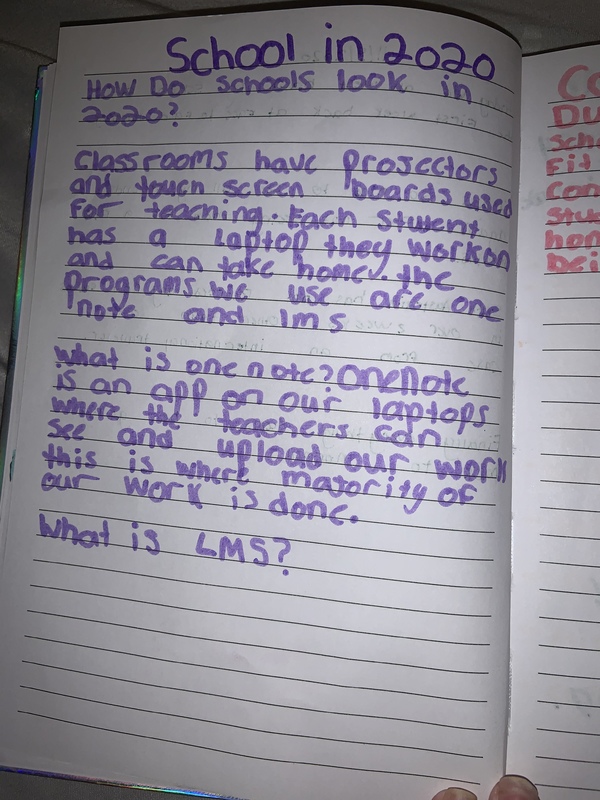 School in 2020
How Do schools look in
2020?
Classrooms have projectors
and touch screen boards used
for teaching. Each student
has a laptop they work on
and can take home. the
programs we use are one
note and lms
What is one note? OneNote
is an app on our laptops
where the teachers can
see and upload our work
this is where majority of
our work is done.
What is LMS?
Co
Du
Scho
Fit
Con
Stu
hom
bei